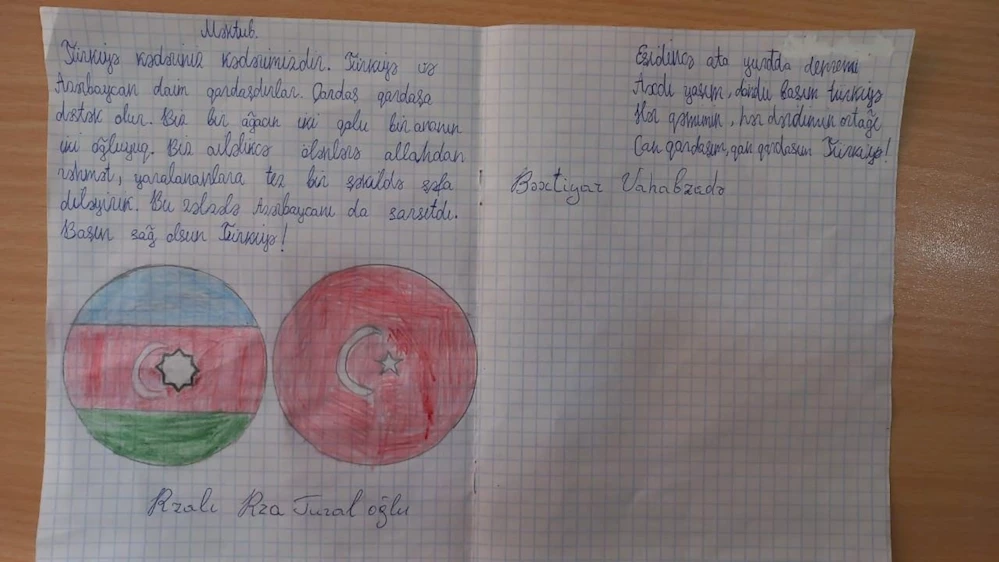 Məktub.
Türkiyə kədəriniz kədərimizdir. Türkiyə və
Azərbaycan daim qardaşdırlar. Qardaş qardaşa
dəstək olur. Biz bir ağacın iki qolu bir ananın
iki oğluyuq. Biz ailəlikcə ölənlərə allahdan
rəhmət, yaralananlara tez bir şəkildə şəfa
diləyirik. Bu zəlzələ Azərbaycanı da sarsıtdı.
Başın sağ olsun Türkiyə!
Rzalı Rza Tural oğlu
Eşidincə ata yurdda depremi
Axdı yaşım, döndü başım türkiyə
Hər qəmimin, hər dərdimin ortağı
Can qardaşım, qan qardaşım Türkiyə!
Bəxtiyar Vahabzadə